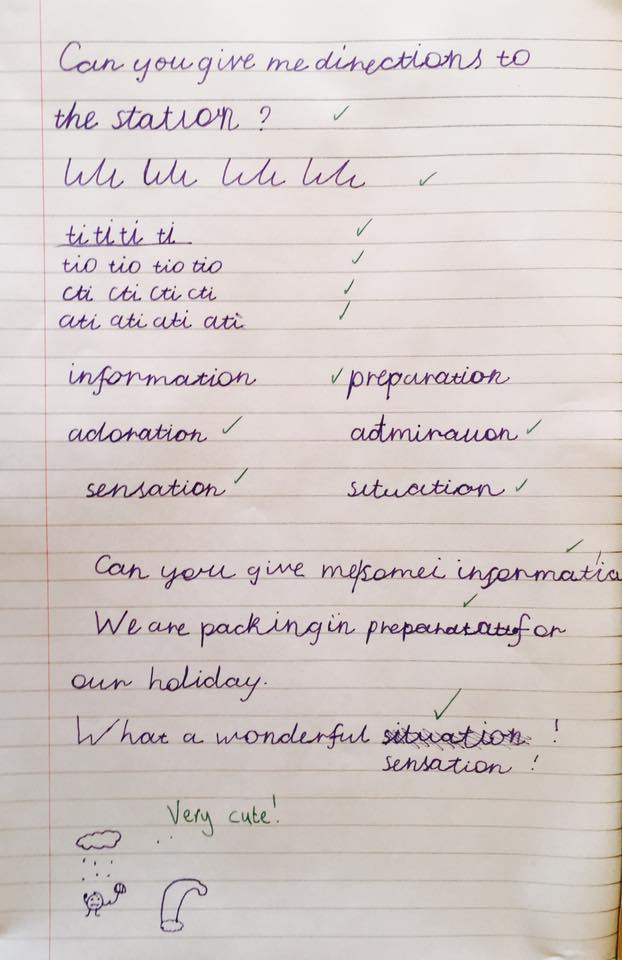 Can you give me directions to
the station?
ti ti ti ti
tio tio tio tio
cti cti cti cti
ati ati ati ati
information preparation
adoration admiration
sensation situation
Can you give me some informatio
We are packing in for
our holiday.
What a wonderful situation !
sensation !
Very cute!